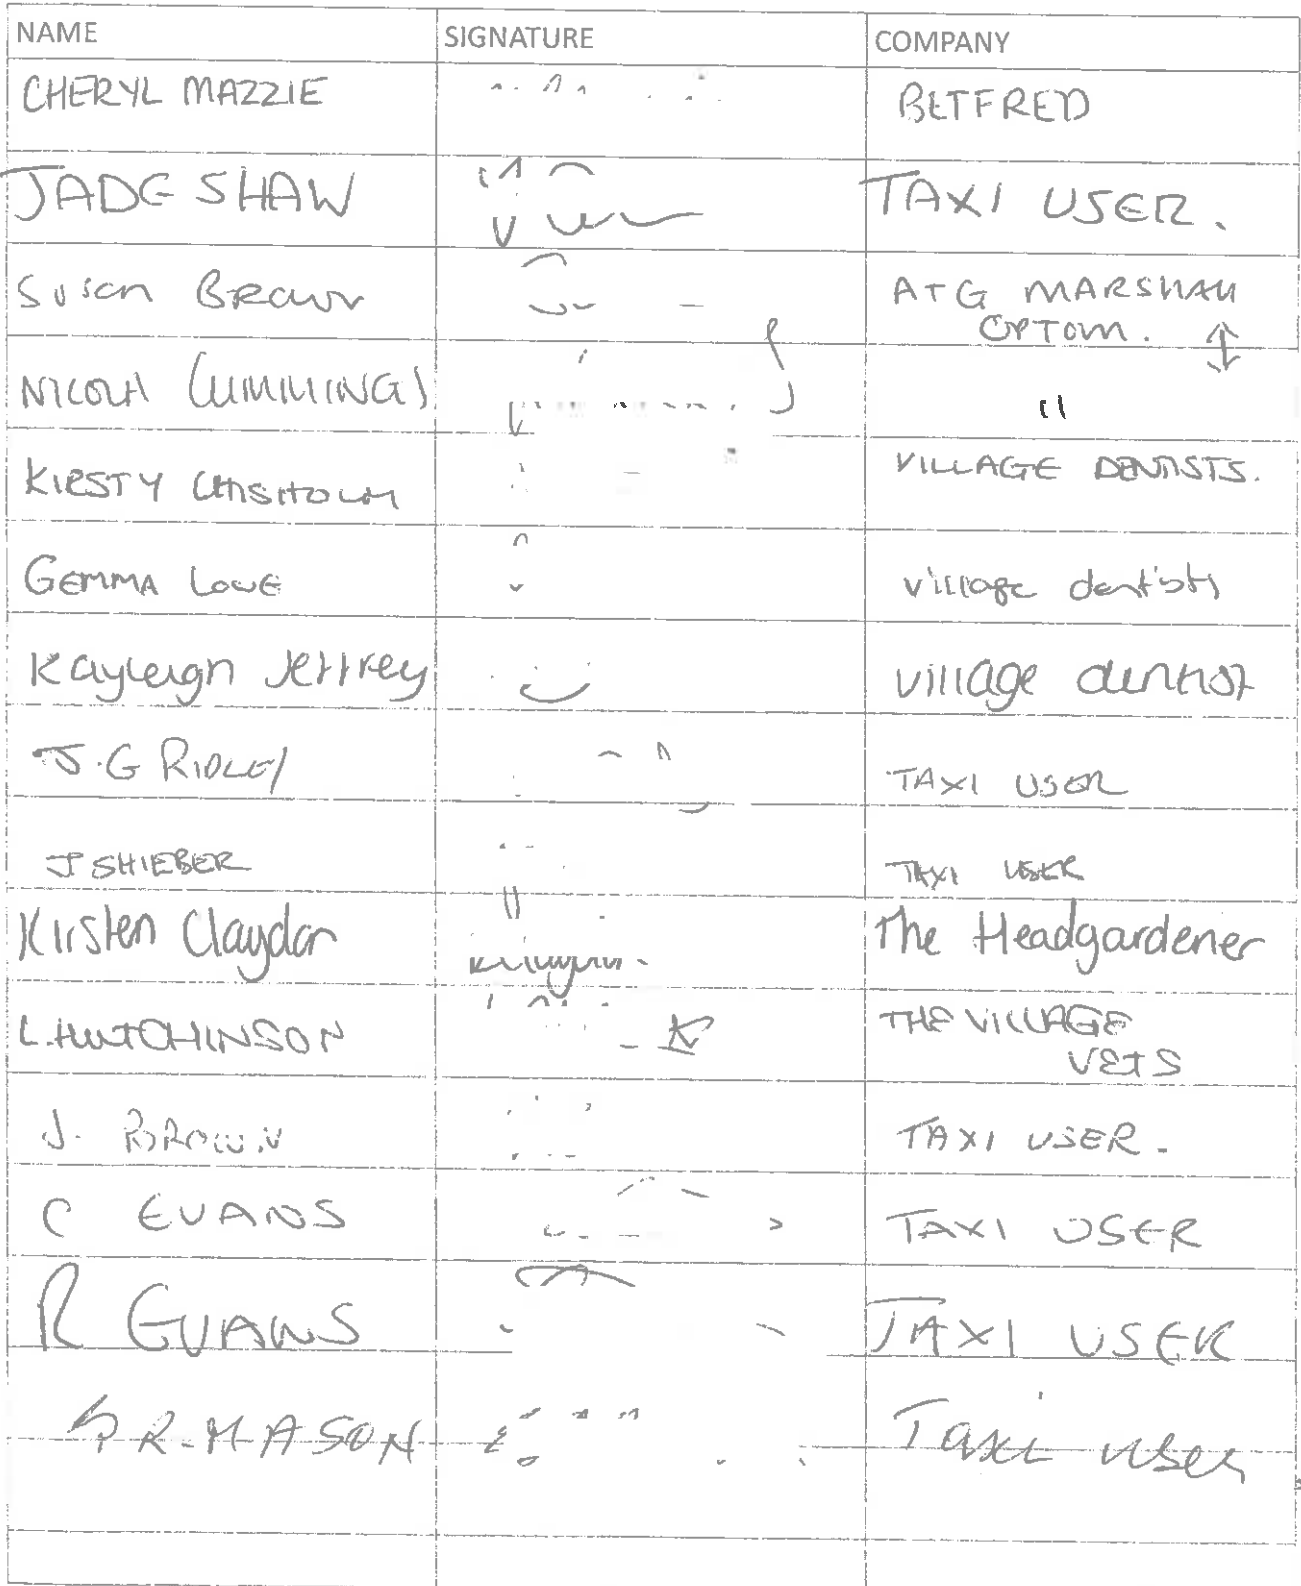 NAME SIGNATURE COMPANY
CHERYL MAZZIE BETFRED
JADE SHAW TAXI USER.
Susan Brown A+G MARSHALL
OPTOM.
NICOLA CUMMINGS "
KIRSTY CHISHOLM VILLAGE DENTISTS.
GEMMA LOWE village dentists
Kayleigh Jeffrey village dentist
J.G RIDLEY TAXI USER
J SHIEBER TAXI USER
Kirsten Claydon The Headgardener
L. HUTCHINSON THE VILLAGE
VETS
J. BROWN TAXI USER.
C EVANS TAXI USER
R EVANS TAXI USER
R. MASON Taxi user